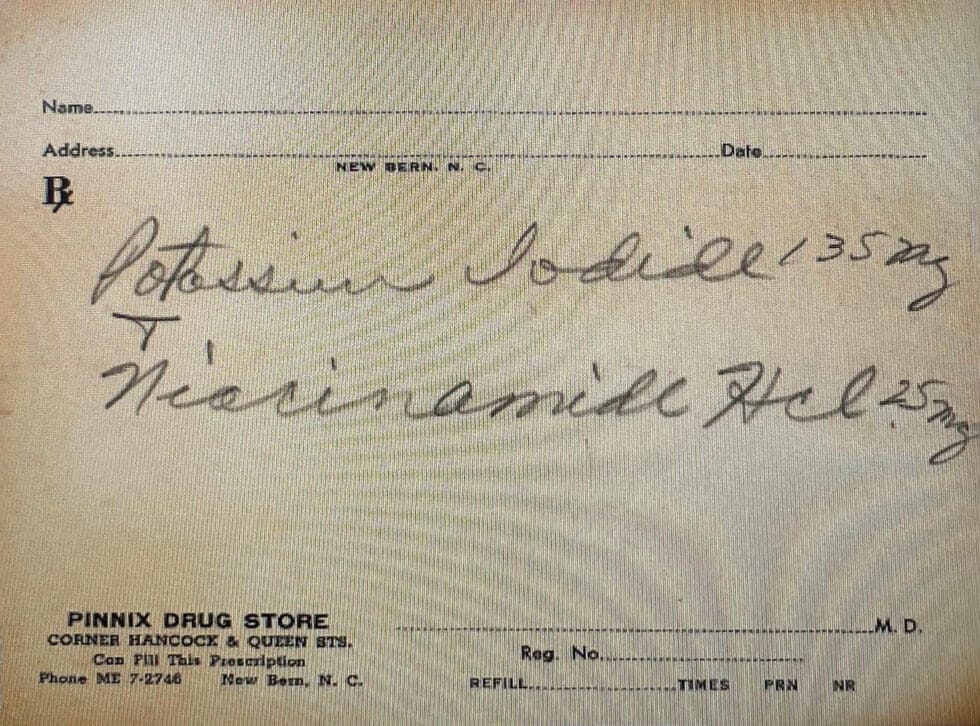 Name
Address Date
NEW BERN, N. C.
Rx
Potassium Iodide 135 mg
+
Niacinamide Hcl 25 mg
PINNIX DRUG STORE
CORNER HANCOCK & QUEEN STS.
Can Fill This Prescription
Phone ME 7-2746 New Bern, N. C.
M. D.
Reg. No.
REFILL TIMES PRN NR